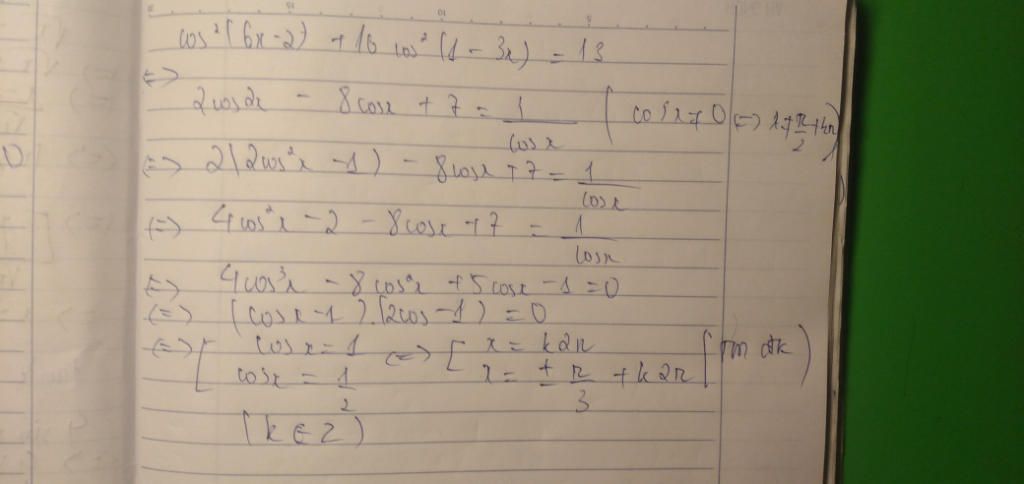 cos²(6x-2) + 16 cos²(1-3x) = 13
<=>
2cos2x - 8cosx + 7 = 1/cosx (cosx ≠ 0 <=> x ≠ π/2 + kπ)
<=> 2(2cos²x - 1) - 8cosx + 7 = 1/cosx
<=> 4cos²x - 2 - 8cosx + 7 = 1/cosx
<=> 4cos³x - 8cos²x + 5cosx - 1 = 0
<=> (cosx - 1).(2cos - 1) = 0
<=> [ cosx = 1 <=> [ x = k2π
cosx = 1/2 x = ± π/3 + k2π (tm đk)
(k ∈ Z)